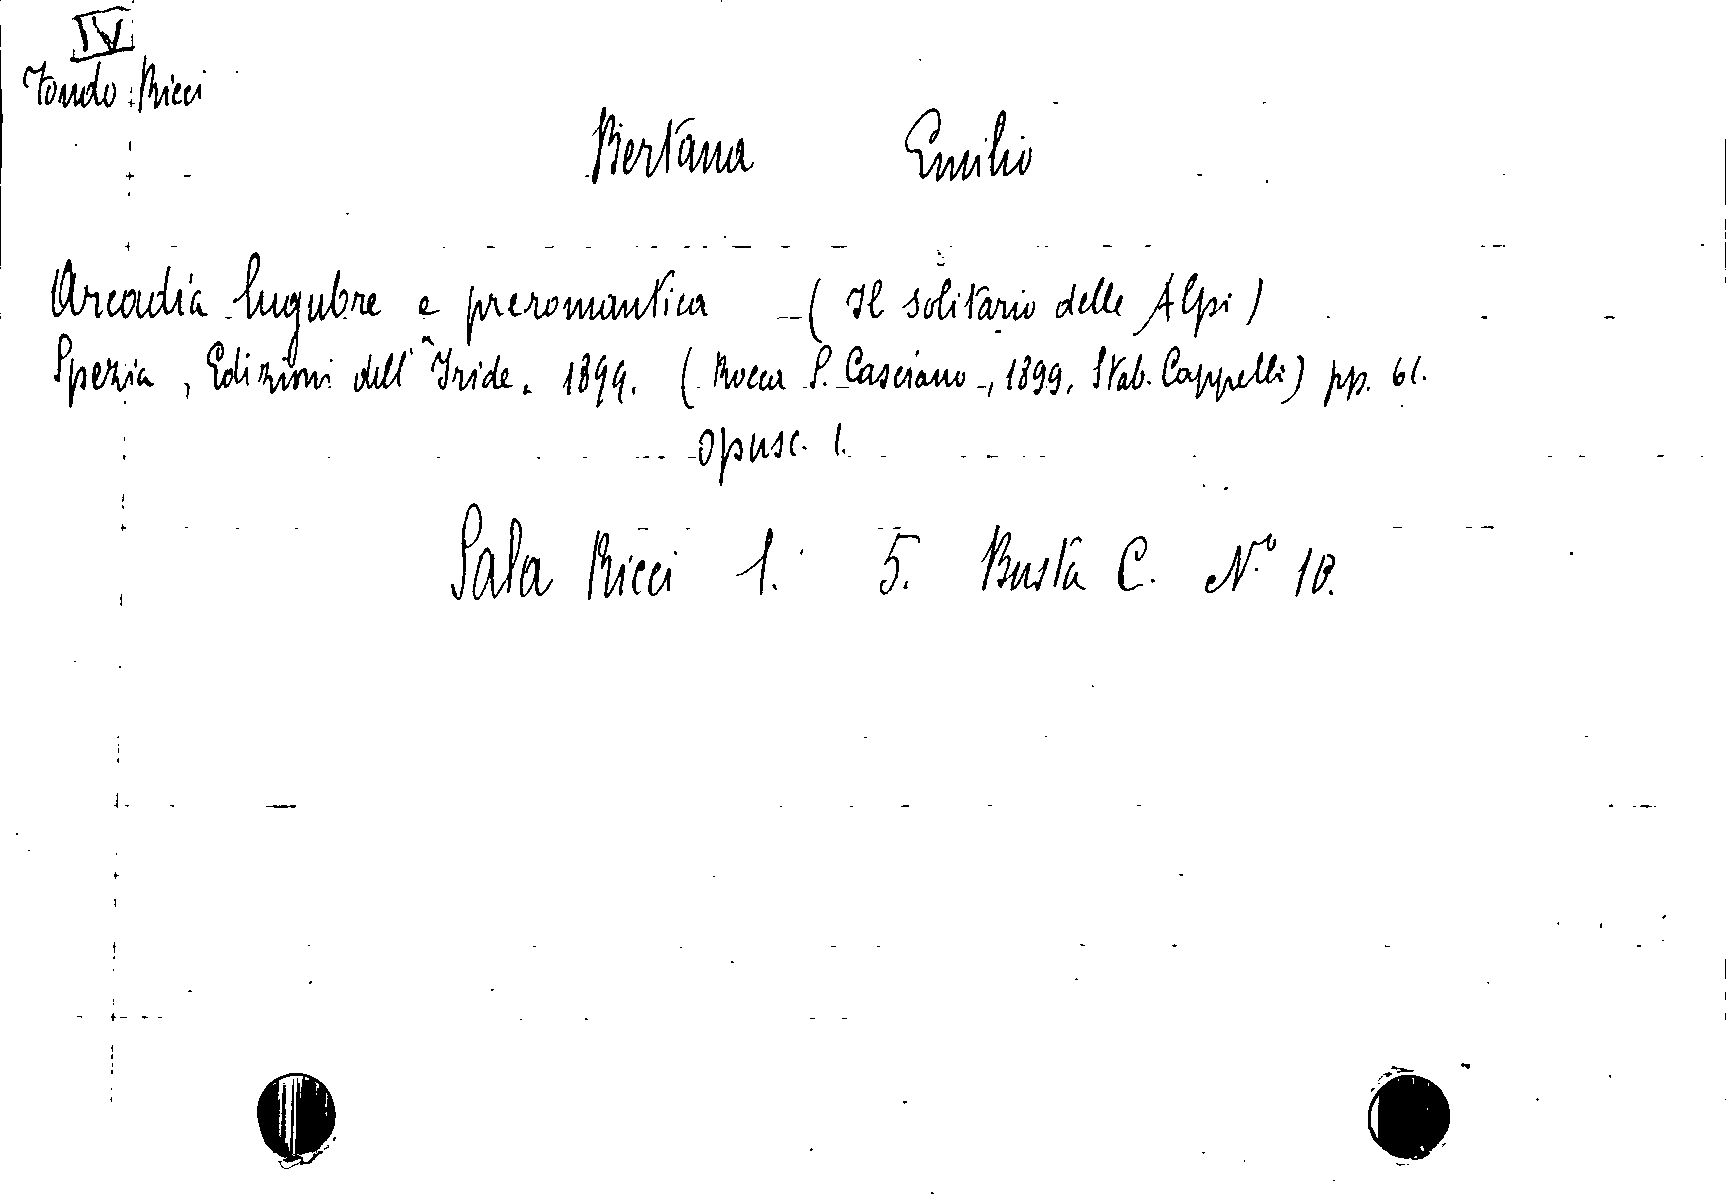 IV
Fondo Ricci
Bertana Emilio
Arcadia lugubre e preromantica - (Il solitario delle Alpi)
Spezia, Edizioni dell' Iride. 1899. (Rocca S. Casciano, 1899, Stab. Cappelli) pp. 61.
opusc. 1.
Sala Ricci 1. 5. Busta C. N.° 10.